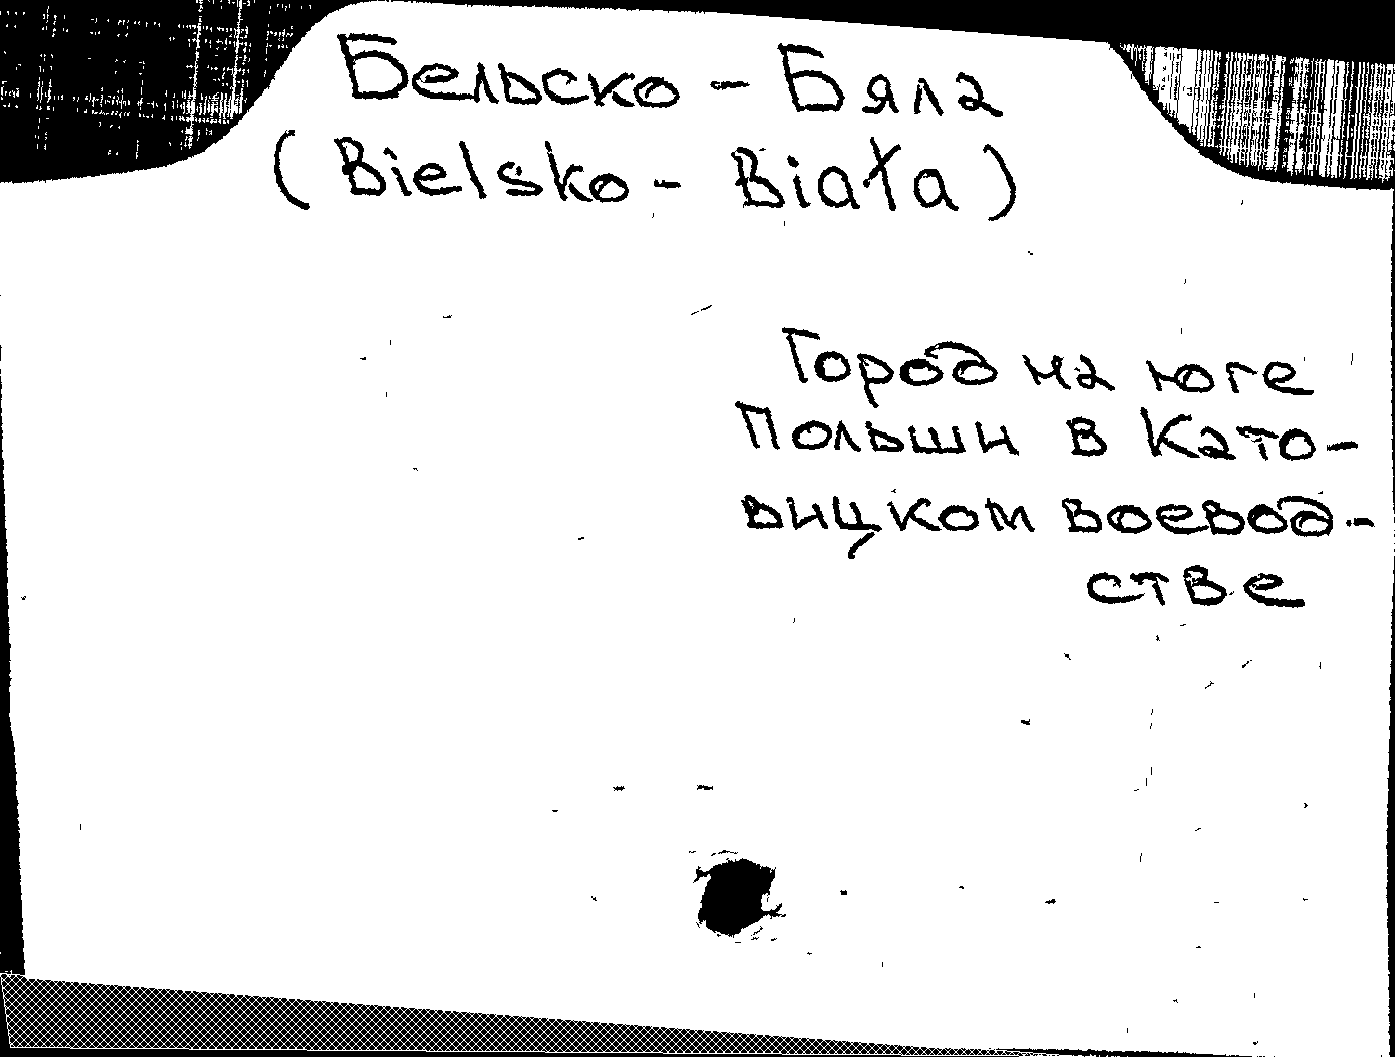 Бельско - Бяла
(Bielsko - Biała)
Город на юге
Польши в Като-
вицком воевод-
стве